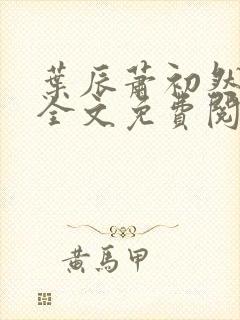 葉辰蕭初然
全文免費閱
黃馬甲